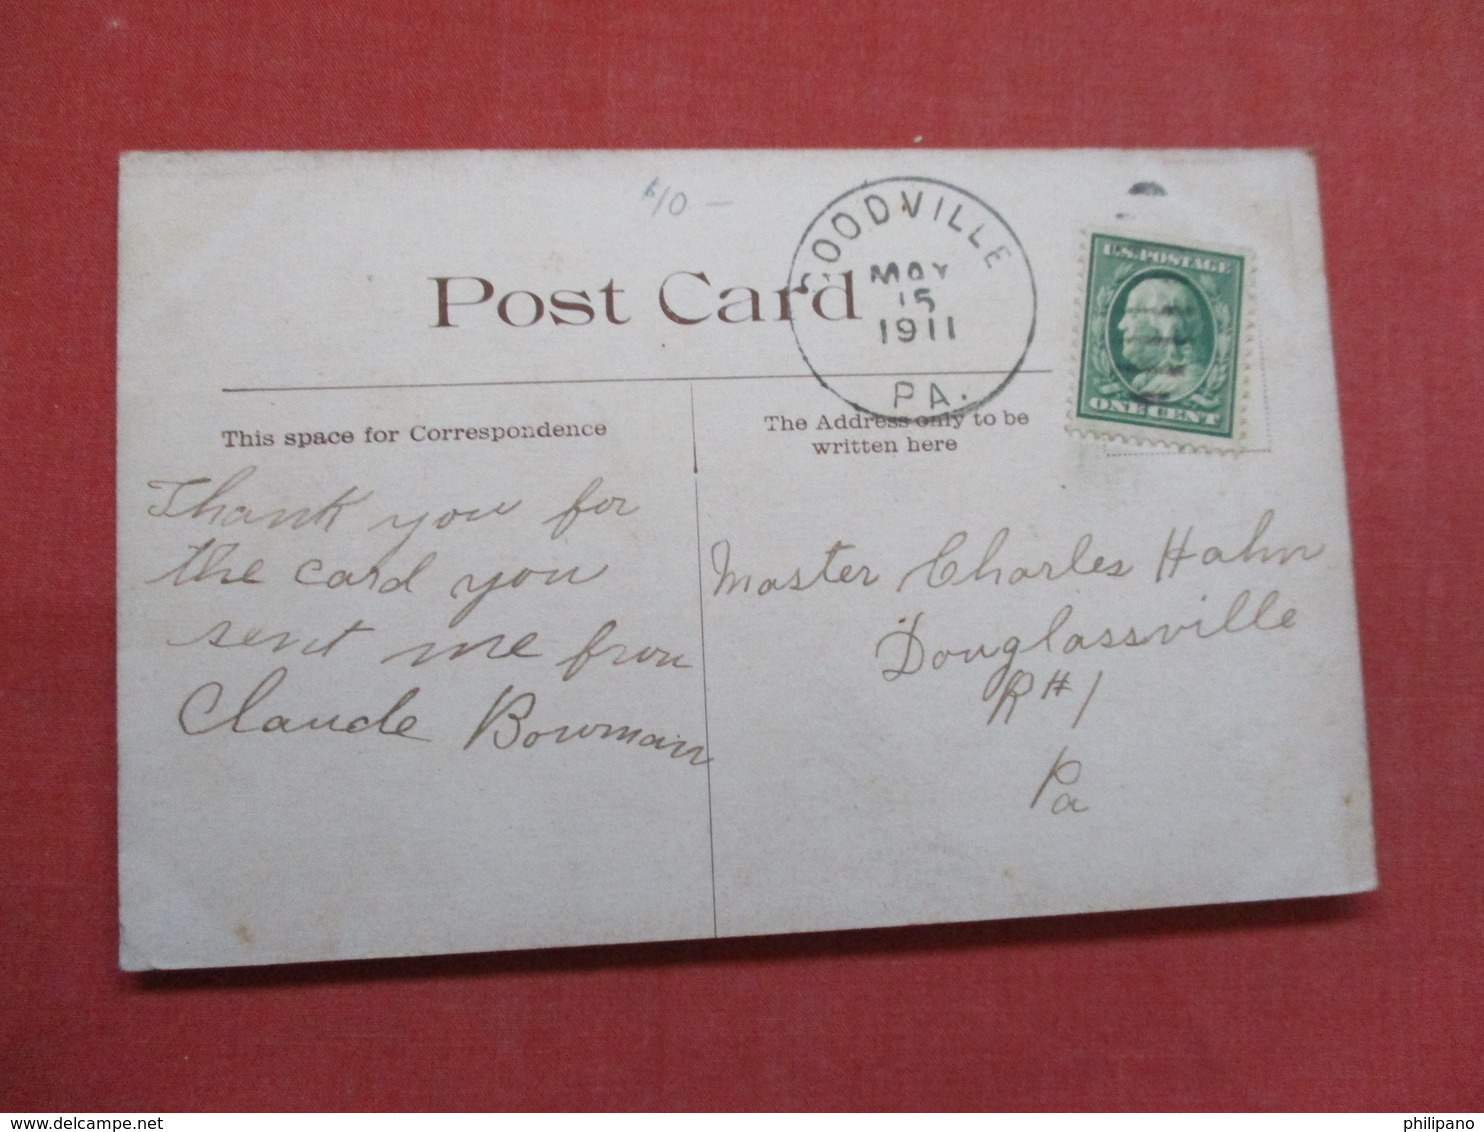 $10 –
OODVILLE
MAY
15
1911
PA.
U.S. POSTAGE
ONE CENT
Post Card
This space for Correspondence
The Address only to be
written here
Thank you for
the card you
sent me from
Claude Bowman
Master Charles Hahn
Douglassville
R#1
Pa
www.delcampe.net
philipano